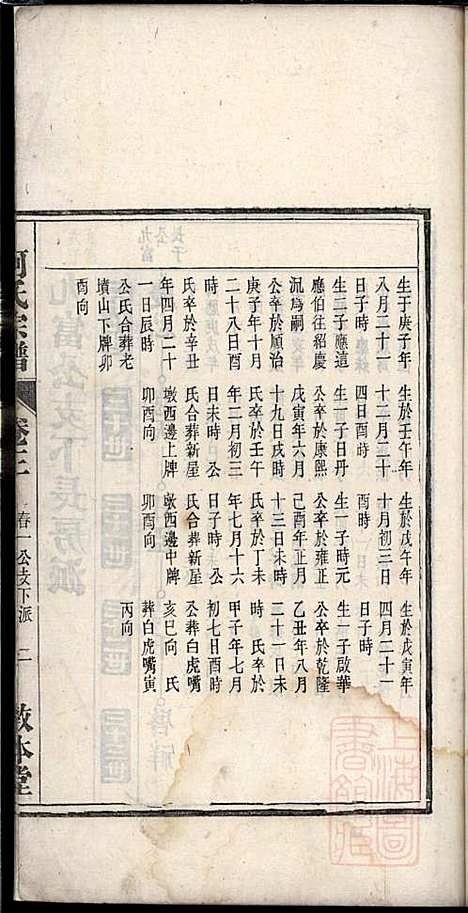 生于庚子年
八月二十一
日子時
生二子應這
應伯往紹慶
況爲嗣
公卒於順治
庚子年十月
二十八日酉
時
氏卒於辛丑
年四月二十
一日辰時
公氏合葬老
墳山下牌卯
酉向
生於壬午年
十二月二十
四日酉時
生一子日丹
公卒於康熙
戊寅年六月
十九日戌時
氏卒於壬午
年二月初三
日未時 公
氏合葬新屋
墩西邊上牌
卯酉向
生於戊午年
十月初三日
酉時
生一子時元
公卒於雍正
己酉年正月
十三日未時
氏卒於丁未
年七月十六
日子時 公
氏合葬新屋
墩西邊中牌
卯酉向
生於戊寅年
四月二十一
日子時
生一子啟華
公卒於乾隆
乙丑年八月
二十一日未
時 氏卒於
甲子年七月
初七日酉時
公葬白虎嘴
亥巳向 氏
葬白虎嘴寅
丙向
何氏宗譜
春一公支下派
二
敦本堂
上海圖書館藏